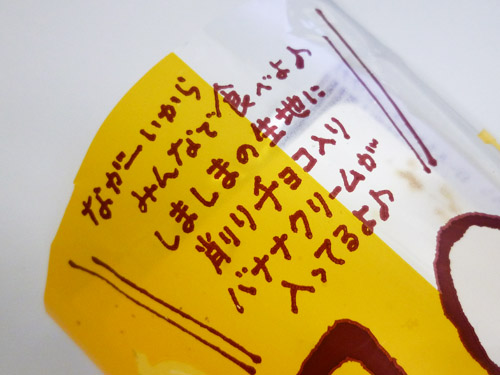 ながーいから
みんなで食べよう
しましまの生地に
削りチョコ入り
バナナクリームが
入ってるよう